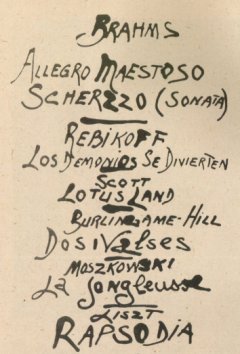 BRAHMS
ALLEGRO MAESTOSO
SCHERZZO (SONATA)
REBIKOFF
LOS DEMONIOS SE DIVIERTEN
SCOTT
LOTUS LAND
BURLINGAME-HILL
DOS VALSES
MOSZKOWSKI
La Jongleusse
LISZT
RAPSODIA